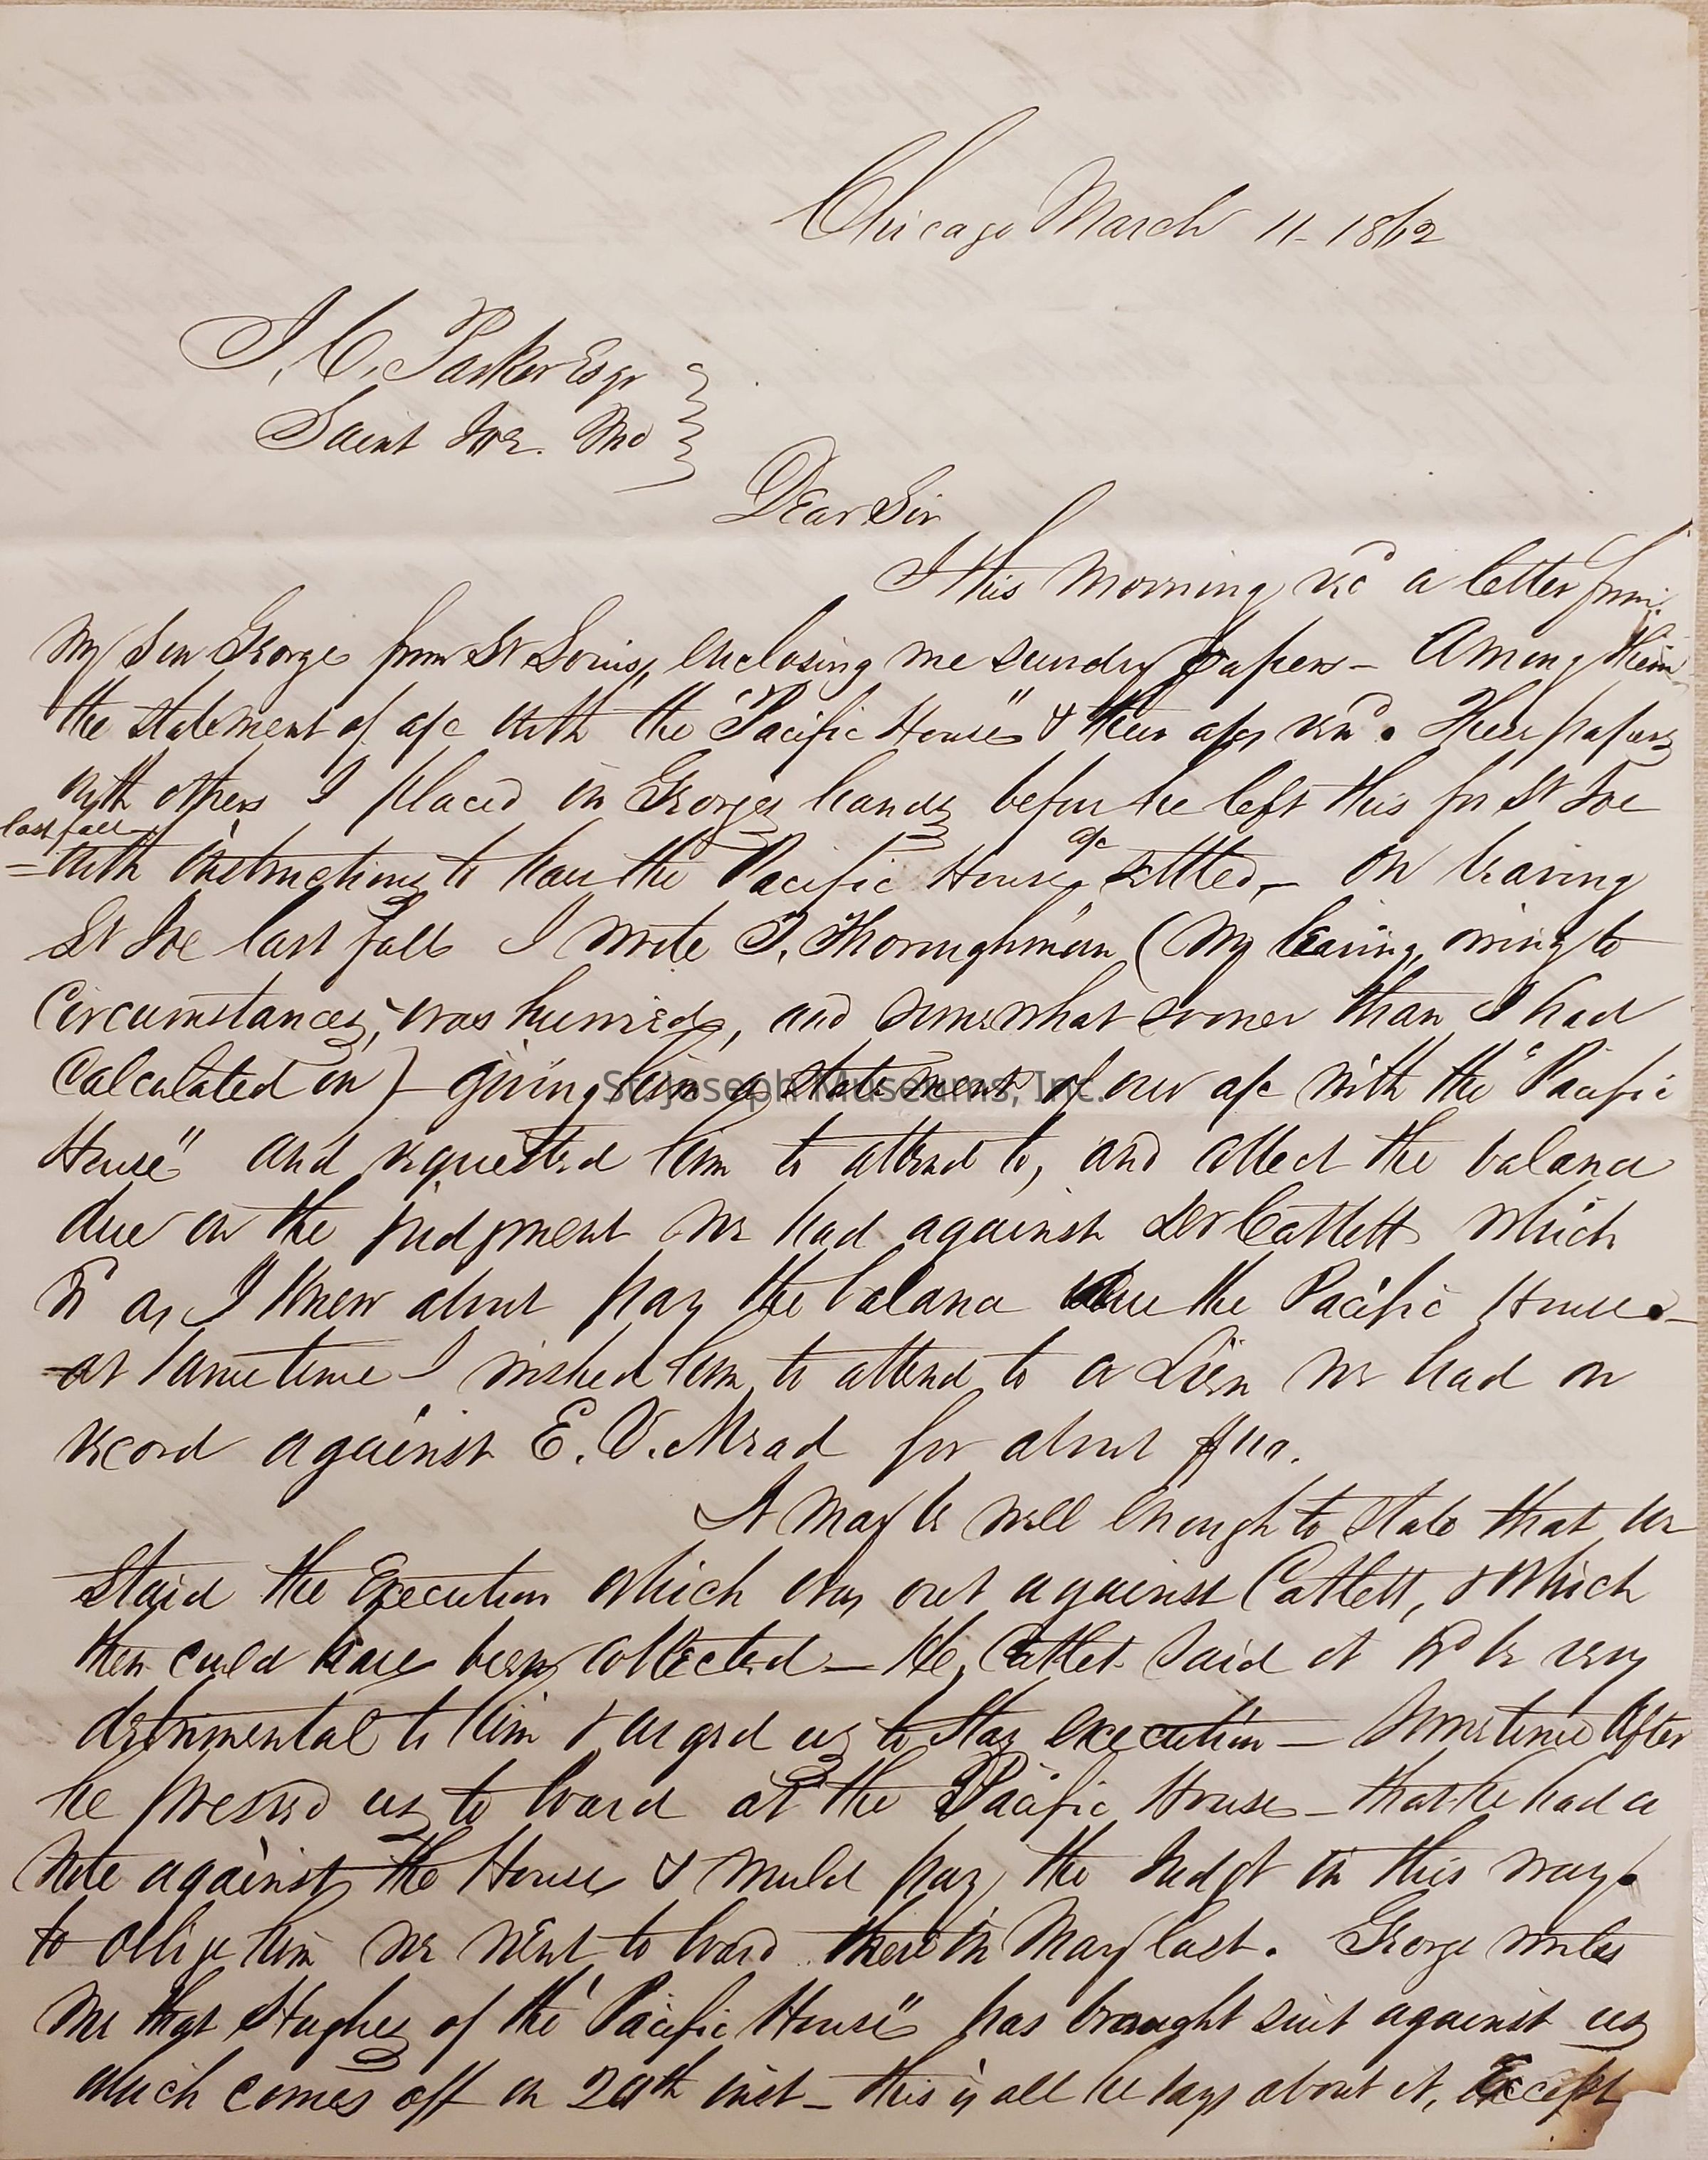 Chicago March 11- 1862
I. C. Parker Esqr
Saint Joe. Mo
Dear Sir
I this morning recd a letter from
my Son George from St Louis, enclosing me sundry papers - Among them
the statement of a/c with the "Pacific House" & their a/cs rend. These papers
with others I placed in Georges hands before he left this for St Joe
last fall
= with instructions to have the Pacific House a/c settled, - On leaving
St Joe last fall I wrote T. Thoroughman (my leaving, owing to
Circumstances, was hurried, and somewhat sooner than I had
Calculated on) - giving him a statement of our a/c with the "Pacific
St. Joseph Museums, Inc.
House" and requested him to attend to, and collect the balance
due on the judgment we had against Catlett which
as I knew about pay the balance due the Pacific House. -
at same time I wished him to attend to a Lien we had on
record against E. V. Mead for about
It may be well enough to state that we
Staid the Execution which was out against Catlett, & which
then could have been collected - He, Catlet said it wd be very
detrimental to him & urged us to stay execution - Sometime after
he pressed us to board at the Pacific House - that he had a
Note against the House & would pay the Judgt in this way.
to oblige him we went to board there in May last. George writes
me that Hughes of the "Pacific House" has brought suit against us
which comes off on inst - this is all he says about it, Except